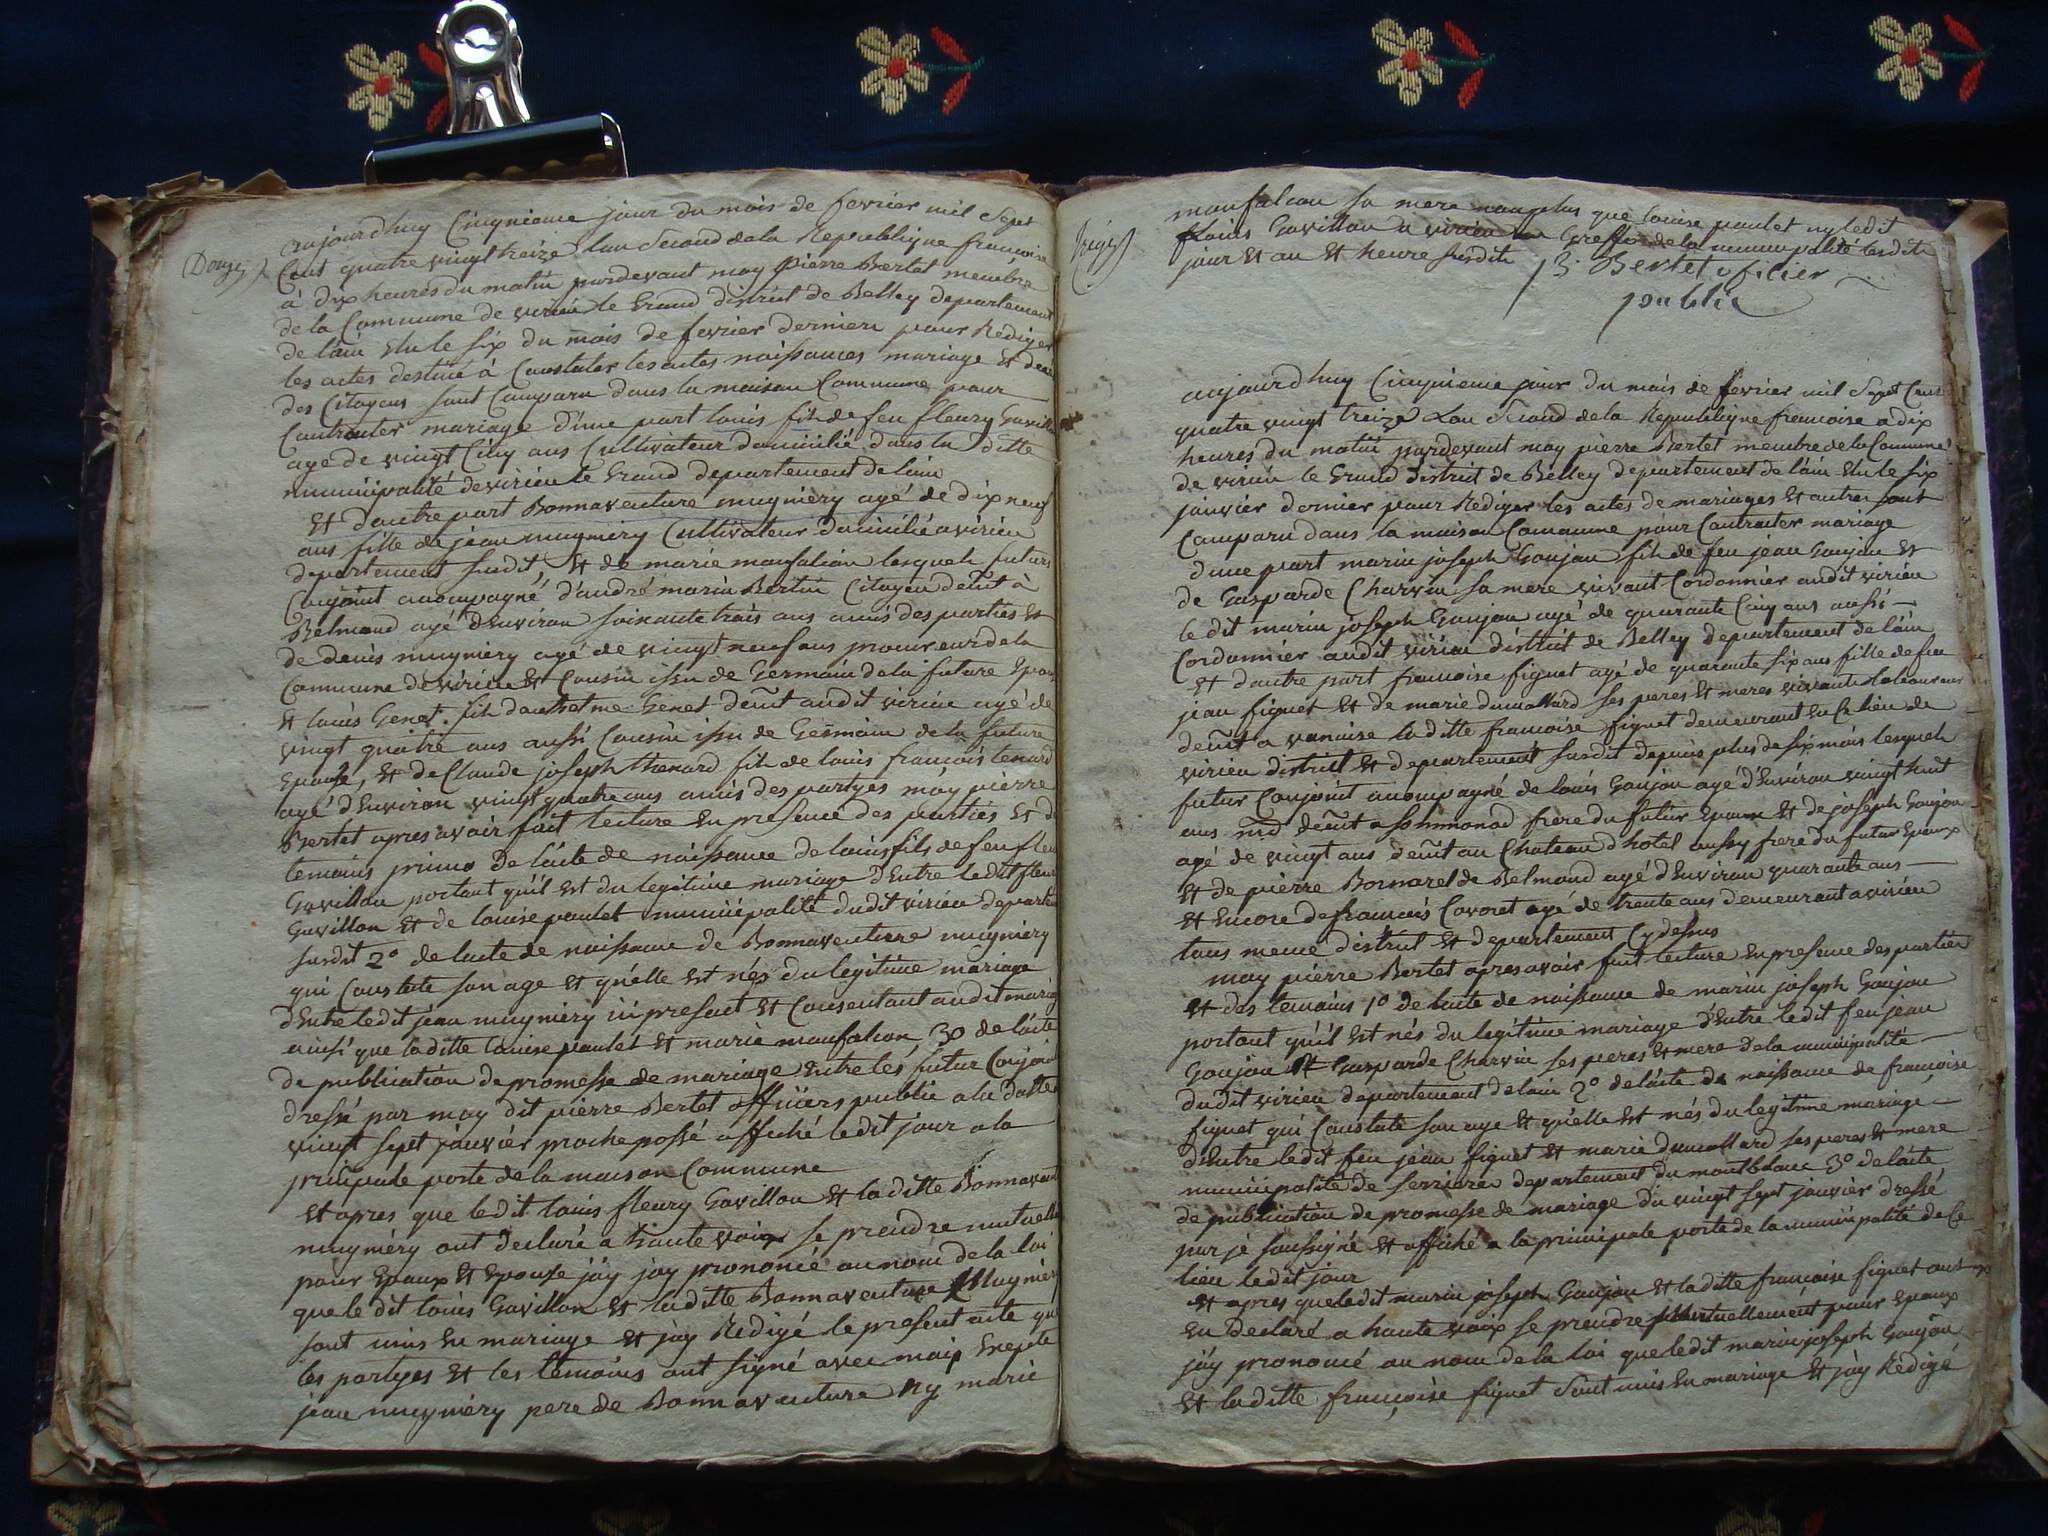 Douze
aujourdhuy Cinqnieme jour du mois de fevrier mil Sept
Cent quatre vingt treize lan Second de la Republique francoise
à dix heures du matin pardevant moy pierre Bertet membre
de la Commune de virieu le Grand district de Belley departement
de lain Elu le six du mois de fevrier derniere pour Rediger
les actes destiné à Constater les actes naissances mariage Et deces
des Citoyens sont Comparu dans la maison Commune pour
Contracter mariage d'une part louis fils de feu fleury Gavillon
age de vingt Cinq ans Cultivateur domicilié dans la ditte
municipalité de virieu le Grand departement de lain
Et dautre part Bonnaventure mugniéry agé de dix neuf
ans fille de jean mugniéry Cultivateur domicilié a virieu
departement susdit Et de marie monfalcon lesquels futurs
Conjoint acompagné d'andré marin Bertin Citoyen demt à
Belmond agé d'Environ soixante trois ans amis des parties Et
de denis mugniéry agé de vingt neuf ans procureur de la
Commune de virieu Et Cousin issu de Germain de la future Epouse
Et louis Genet fils danthelme Genet demt audit virieu agé de
vingt quatre ans aussi Cousin issu de Germain de la future
Epouse, Et de Claude joseph thenard fils de louis francois tenard
agé d'Environ vingt quatre ans amis des partyes moy pierre
Bertet apres avoir fait lecture En presence des parties Et de
temoins primo de lacte de naissance de louis fils de feu fleury
Gavillon portant qu'il Est du legitime mariage d'Entre ledit fleury
Gavillon Et de louise paulet municipalité dudit virieu departement
susdit 2o de lacte de naissance de Bonnaventure mugniéry
qui Constate son age Et qu'elle Est nés du legitime mariage
d'Entre ledit jean mugniéry ici present Et Consentant audit mariage
ainsi que laditte louise paulet Et marie monfalcon, 3o de lacte
de publication de promesse de mariage Entre les futur Conjoint
dressé par moy dit pierre Bertet officiers public a la datte
vingt sept janvier proche passé affiché ledit jour a la
pricipale porte de la maison Commune
Et apres que ledit louis fleury Gavillon Et laditte Bonnavanture
mugniéry ont declaré a haute voix se prendre mutuellement
pour Epoux Et Epouse jay jay prononcé au nom de la loi
que le dit louis Gavillon Et laditte Bonnaventure Mugniery
sont unis En mariage Et jay Rédigé le present acte que
les partyes Et les temoins ont signé avec moip Exepte
jean mugniéry pere de Bonnaventure ny marie
monfalcon sa mere nonplus que louise paulet ny ledit
louis Gavillon a virieu au Greffe de la municipalité lesdits
jour Et an Et heure susdite
P Bertet oficier
public
Treize
aujourdhuy Cinquieme jour du mois de fevrier mil Sept Cent
quatre vingt treize Lan Second de la Republique francoise a dix
heures du matin pardevant moy pierre Bertet membre de la Commune
de virieu le Grand district de Belley departement de l'ain Elu le six
janvier dernier pour Rediger les actes de mariages Et autres sont
Comparu dans la maison Commune pour Contracter mariage
d'une part marin joseph Goujon fils de feu jean Goujon Et
de Gasparde Charvin sa mere vivant Cordonnier audit virieu
le dit marin joseph Goujon agé de quarante Cinq ans aussi
Cordonnier audit virieu district de Belley departement de lain
Et dautre part francoise fiquet agé de quarante six ans fille de feu
jean fiquet Et de marie dumollard ses peres Et meres vivant laboureur
demt a vanaise laditte francoise fiquet demeurant En Ce lieu de
virieu district Et departement susdit depuis plus de six mois lesquels
futur Conjoint acompagné de louis Goujon agé d'Environ vingt huit
ans md demt a sommonod frere du futur Epoux Et de joseph Goujon
agé de vingt ans demt au Chateau d'hotel aussy frere du futur Epoux
Et de pierre Bornarel de Belmond agé d'Environ quarante ans
Et Encore de francois Cavoret agé de trente ans demeurant a virieu
tous meme district Et departement Cy dessus
moy pierre Bertet apres avoir fait lecture En presence des parties
Et des temoins 1o de lacte de naissance de marin joseph Goujon
portant qu'il Est nés du legitime mariage d'Entre ledit feu jean
Goujon Et Gasparde Charvin ses peres Et mere de la municipalité
dudit virieu departement de lain 2o de lacte de naissance de francoise
fiquet qui Constate son age Et qu'elle Est nés du legitime mariage
d'Entre ledit feu jean fiquet Et marie dumollard ses peres Et mere
municipalité de serriere departement du montblanc 3o de lacte
de publication de promesse de mariage du vingt sept janvier dressé
par jé soussigné Et affiché a la principale porte de la municipalité de Ce
lieu ledit jour
Et apres que ledit marin joseph Goujon Et laditte francoise fiquet ont
En declaré a haute voix se prendre Mutuellement pour Epoux
j'ay prononcé au nom de la loi que ledit marin joseph Goujon
Et laditte françoise fiquet Sont unis En mariage Et jay Rédigé